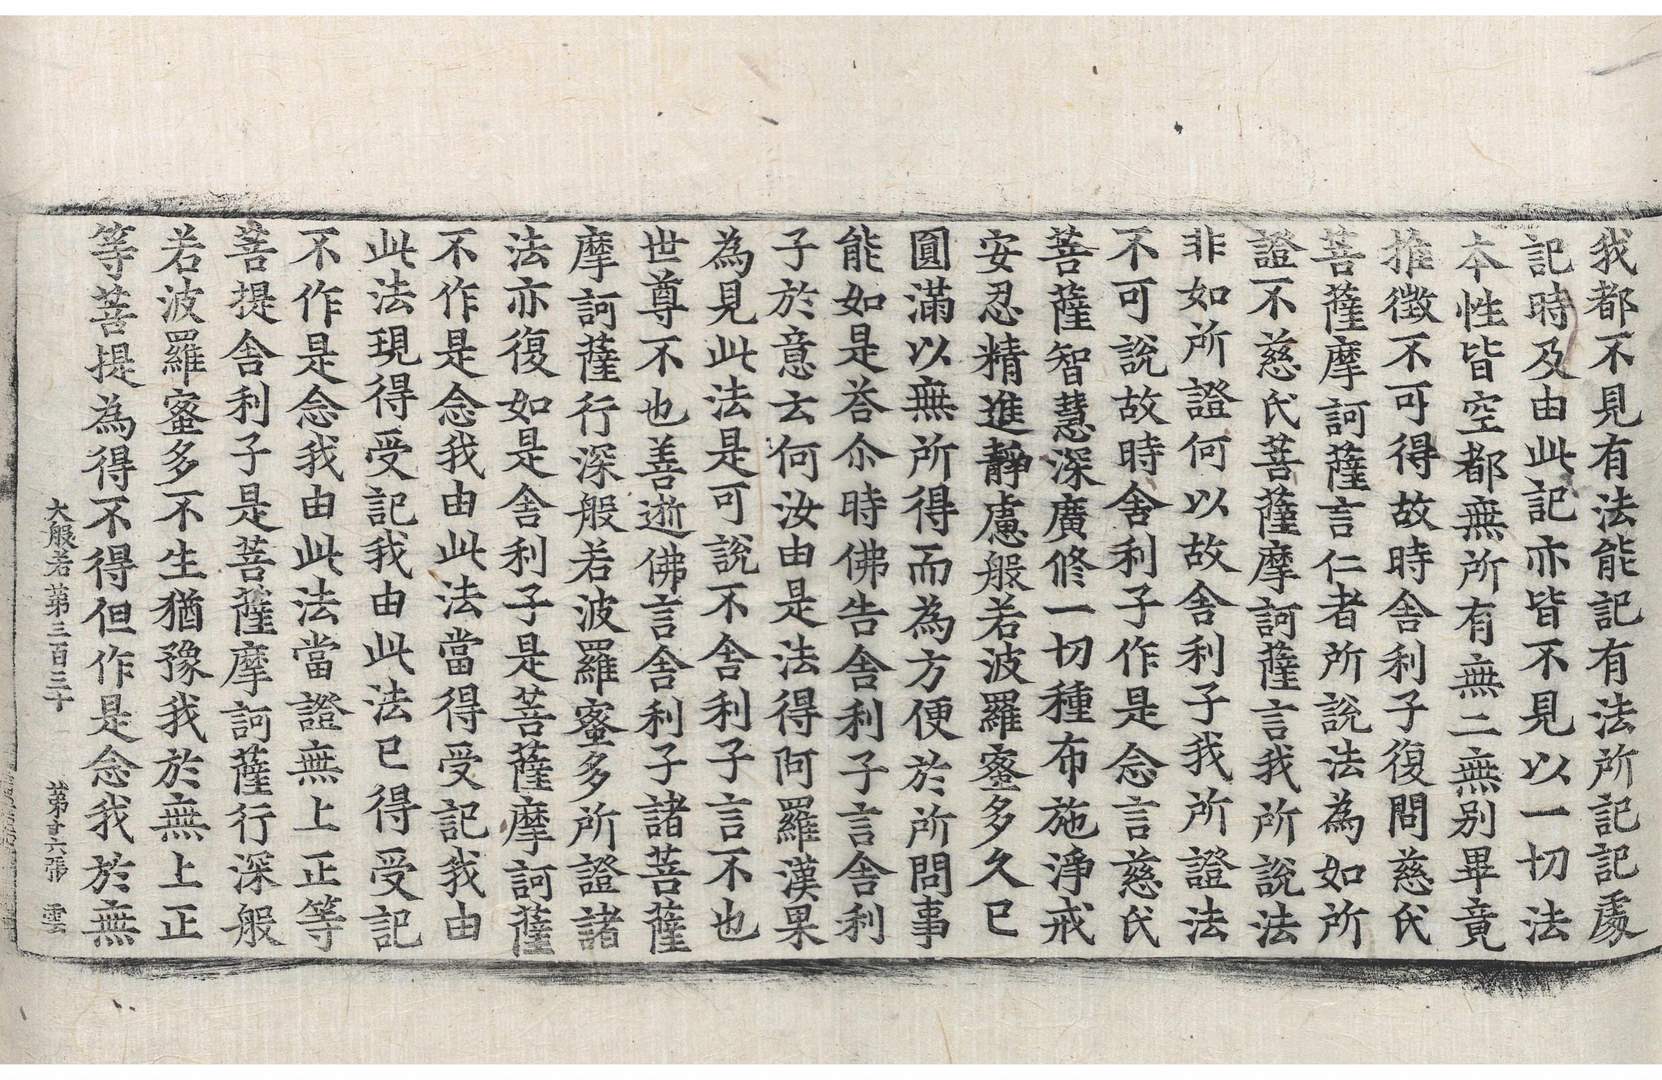 我都不見有法能記有法所記記處
記時及由此記亦皆不見以一切法
本性皆空都無所有無二無別畢竟
推徵不可得故時舍利子復問慈氏
菩薩摩訶薩言仁者所說法為如所
證不慈氏菩薩摩訶薩言我所說法
非如所證何以故舍利子我所證法
不可說故時舍利子作是念言慈氏
菩薩智慧深廣修一切種布施淨戒
安忍精進靜慮般若波羅蜜多久已
圓滿以無所得而為方便於所問事
能如是荅尒時佛告舍利子言舍利
子於意云何汝由是法得阿羅漢果
為見此法是可說不舍利子言不也
世尊不也善逝佛言舍利子諸菩薩
摩訶薩行深般若波羅蜜多所證諸
法亦復如是舍利子是菩薩摩訶薩
不作是念我由此法當得受記我由
此法現得受記我由此法已得受記
不作是念我由此法當證無上正等
菩提舍利子是菩薩摩訶薩行深般
若波羅蜜多不生猶豫我於無上正
等菩提為得不得但作是念我於無
大般若第三百三十 第廿六張 雲